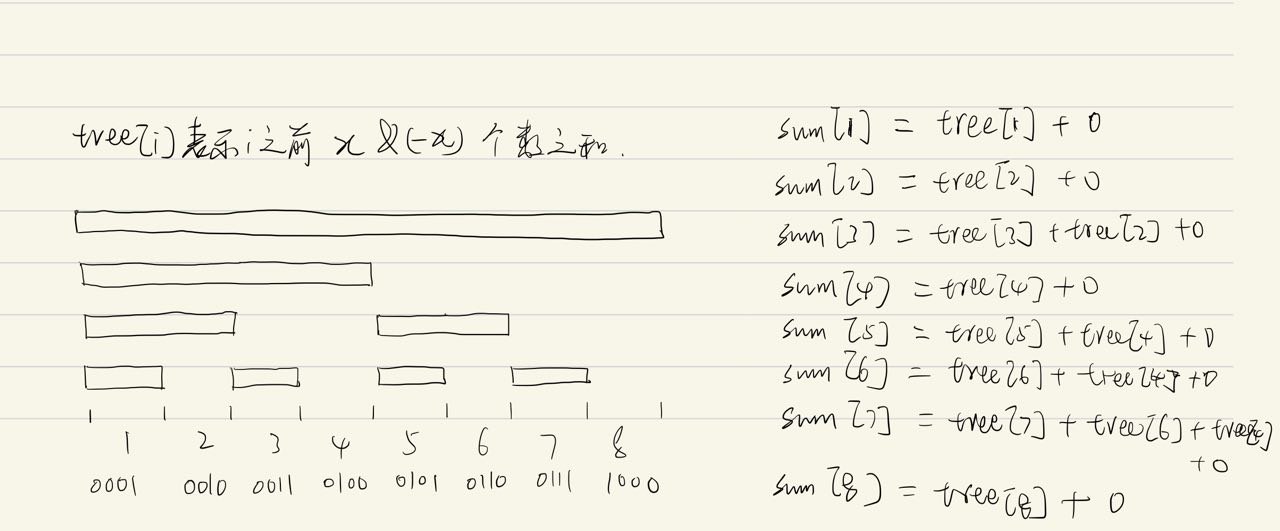 tree[i]表示i之前 x &(-x) 个数之和.
1 2 3 4 5 6 7 8
0001 0010 0011 0100 0101 0110 0111 1000
sum[1] = tree[1] + 0
sum[2] = tree[2] + 0
sum[3] = tree[3] + tree[2] + 0
sum[4] = tree[4] + 0
sum[5] = tree[5] + tree[4] + 0
sum[6] = tree[6] + tree[4] + 0
sum[7] = tree[7] + tree[6] + tree[4]
+ 0
sum[8] = tree[8] + 0